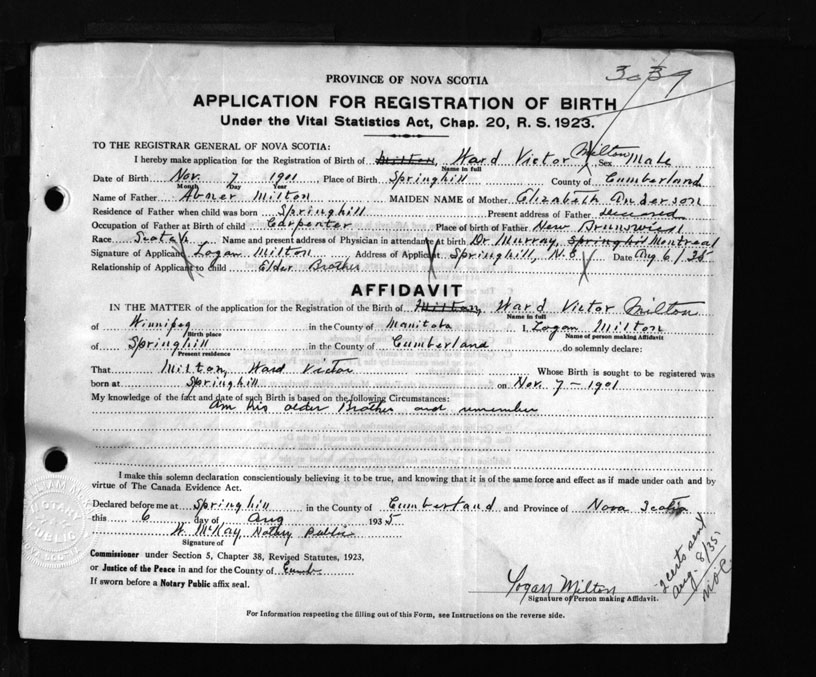 3039
PROVINCE OF NOVA SCOTIA
APPLICATION FOR REGISTRATION OF BIRTH
Under the Vital Statistics Act, Chap. 20, R. S. 1923.
TO THE REGISTRAR GENERAL OF NOVA SCOTIA:
I hereby make application for the Registration of Birth of Milton, Ward Victor Milton Sex Male
Name in full
Date of Birth Nov. 7 1901 Place of Birth Springhill County of Cumberland
Month Day Year
Name of Father Abner Milton MAIDEN NAME of Mother Elizabeth Anderson
Residence of Father when child was born Springhill Present address of Father deceased
Occupation of Father at Birth of child Carpenter Place of birth of Father New Brunswick
Race Scotch Name and present address of Physician in attendance at birth Dr Murray, Springhill Montreal
Signature of Applicant Logan Milton Address of Applicant Springhill, N.S. Date Aug 6/35
Relationship of Applicant to child Elder Brother
AFFIDAVIT
IN THE MATTER of the application for the Registration of the Birth of Milton, Ward Victor Milton
Name in full
of Winnipeg in the County of Manitoba I, Logan Milton
Birth place Name of person making Affidavit
of Springhill in the County of Cumberland do solemnly declare:
Present residence
That Milton, Ward Victor Whose Birth is sought to be registered was
born at Springhill on Nov. 7 - 1901
My knowledge of the fact and date of such Birth is based on the following Circumstances:
Am his older Brother and remember
I make this solemn declaration conscientiously believing it to be true, and knowing that it is of the same force and effect as if made under oath and by
virtue of The Canada Evidence Act.
Declared before me at Springhill in the County of Cumberland and Province of Nova Scotia
this 6 day of Aug 1935
W. McKay Notary Public
Signature of
Commissioner under Section 5, Chapter 38, Revised Statutes, 1923,
or Justice of the Peace in and for the County of Cumb.
If sworn before a Notary Public affix seal.
NOTARY PUBLIC
NOVA SCOTIA
Logan Milton
Signature of Person making Affidavit.
2 certs sent
Aug. 8/35
For Information respecting the filling out of this Form, see Instructions on the reverse side.